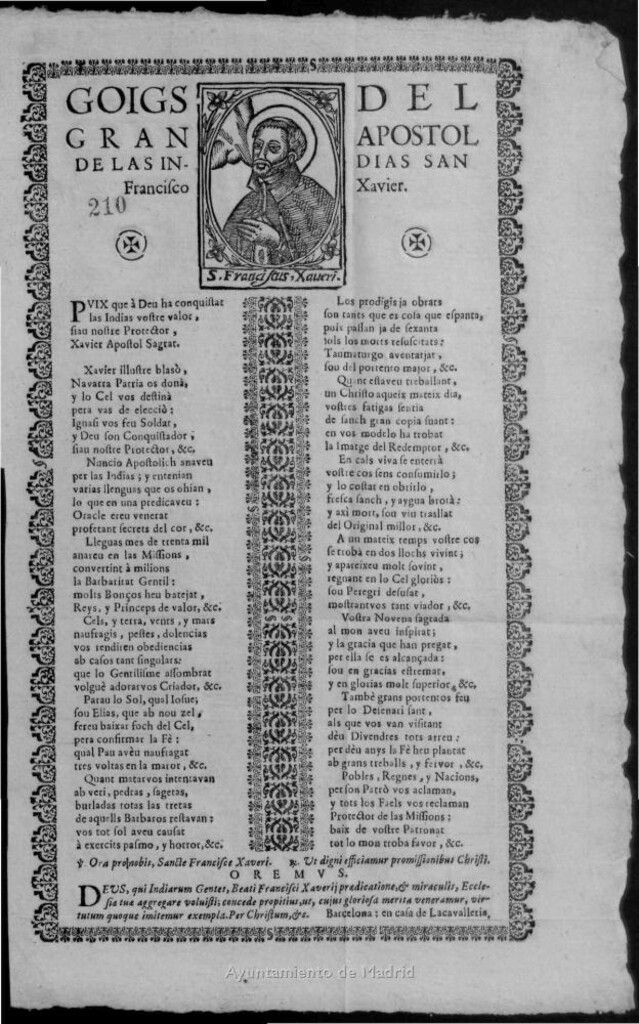 GOIGS DEL
GRAN APOSTOL
DE LAS IN- DIAS SAN
Francisco Xavier.
210
S. Franciscus, Xaueri.
PVIX que à Deu ha conquistat
las Indias vostre valor,
siau nostre Protector,
Xavier Apostol Sagrat.
Xavier illustre blasò,
Navarra Patria os donà,
y lo Cel vos destinà
pera vas de elecciò:
Ignasi vos feu Soldar,
y Deu son Conquistador;
siau nostre Protector, &c.
Nuncio Apostolich anaveu
per las Indias; y entenian
varias llenguas que os ohian,
lo que en una predicaveu:
Oracle ereu venerat
profetant secrets del cor, &c.
Lleguas mes de trenta mil
anareu en las Missions,
convertint à milions
la Barbaritat Gentil:
molts Bonços heu batejar,
Reys, y Princeps de valor, &c.
Cels, y terra, vents, y mars
naufragis, pestes, dolencias
vos rendiren obediencias
ab casos tant singulars:
que lo Gentilisme assombrat
volguè adorarvos Criador, &c.
Parau lo Sol, qual Iosue;
sou Elias, que ab nou zel,
fereu baixar foch del Cel,
pera confirmar la Fè:
qual Pau avèu naufragat
tres voltas en la maror, &c.
Quant matarvos intentavan
ab verì, pedras, sagetas,
burladas totas las tretas
de aquells Barbaros restavan:
vos tot sol aveu causat
à exercits pasmo, y horror, &c.
Los prodigis ja obrars
son tants que es cosa que espanta,
puis passan ja de sexanta
sols los morts resuscitats:
Taumaturgo aventatjar,
sou del portento major, &c.
Quant estaveu treballant,
un Christo aqueix mateix dia,
vostres fatigas sentia
de sanch gran copia suant:
en vos modelo ha trobat
la Imatge del Redemptor, &c.
En cals viva se enterrà
vostre cos sens consumirlo;
y lo costat en obrirlo,
fresca sanch, y aygua brotà:
y axi mort, sou viu trasllat
del Original millor, &c.
A un mateix temps vostre cos
se trobà en dos llochs vivint;
y apareixeu molt sovint,
regnant en lo Cel gloriòs:
sou Peregrì desusat,
mostrantvos tant viador, &c.
Vostra Novena sagrada
al mon aveu inspirat;
y la gracia que han pregat,
per ella se es alcançada:
sou en gracias estremat,
y en glorias molt superior, &c.
Tambè grans portentos feu
per lo Deienari sant,
als que vos van visitant
dèu Divendres tots arreu:
per dèu anys la Fè heu plantat
ab grans treballs, y fervor, &c.
Pobles, Regnes, y Nacions,
per son Patrò vos aclaman,
y tots los Faels vos reclaman
Protector de las Missions:
baix de vostre Patronat
tot lo mon troba favor, &c.
℣. Ora pro nobis, Sancte Francisce Xaveri. ℟. Ut digni efficiamur promissionibus Christi.
OREMVS.
DEUS, qui Indiarum Gentes, Beati Francisci Xaverij predicatione, & miraculis, Eccle-
sia tua aggregare voluisti; concede propitius, ut, cujus gloriosa merita veneramur, vir-
tutum quoque imitemur exempla. Per Christum, &c. Barcelona: en casa de Lacavalleria,
Ayuntamiento de Madrid